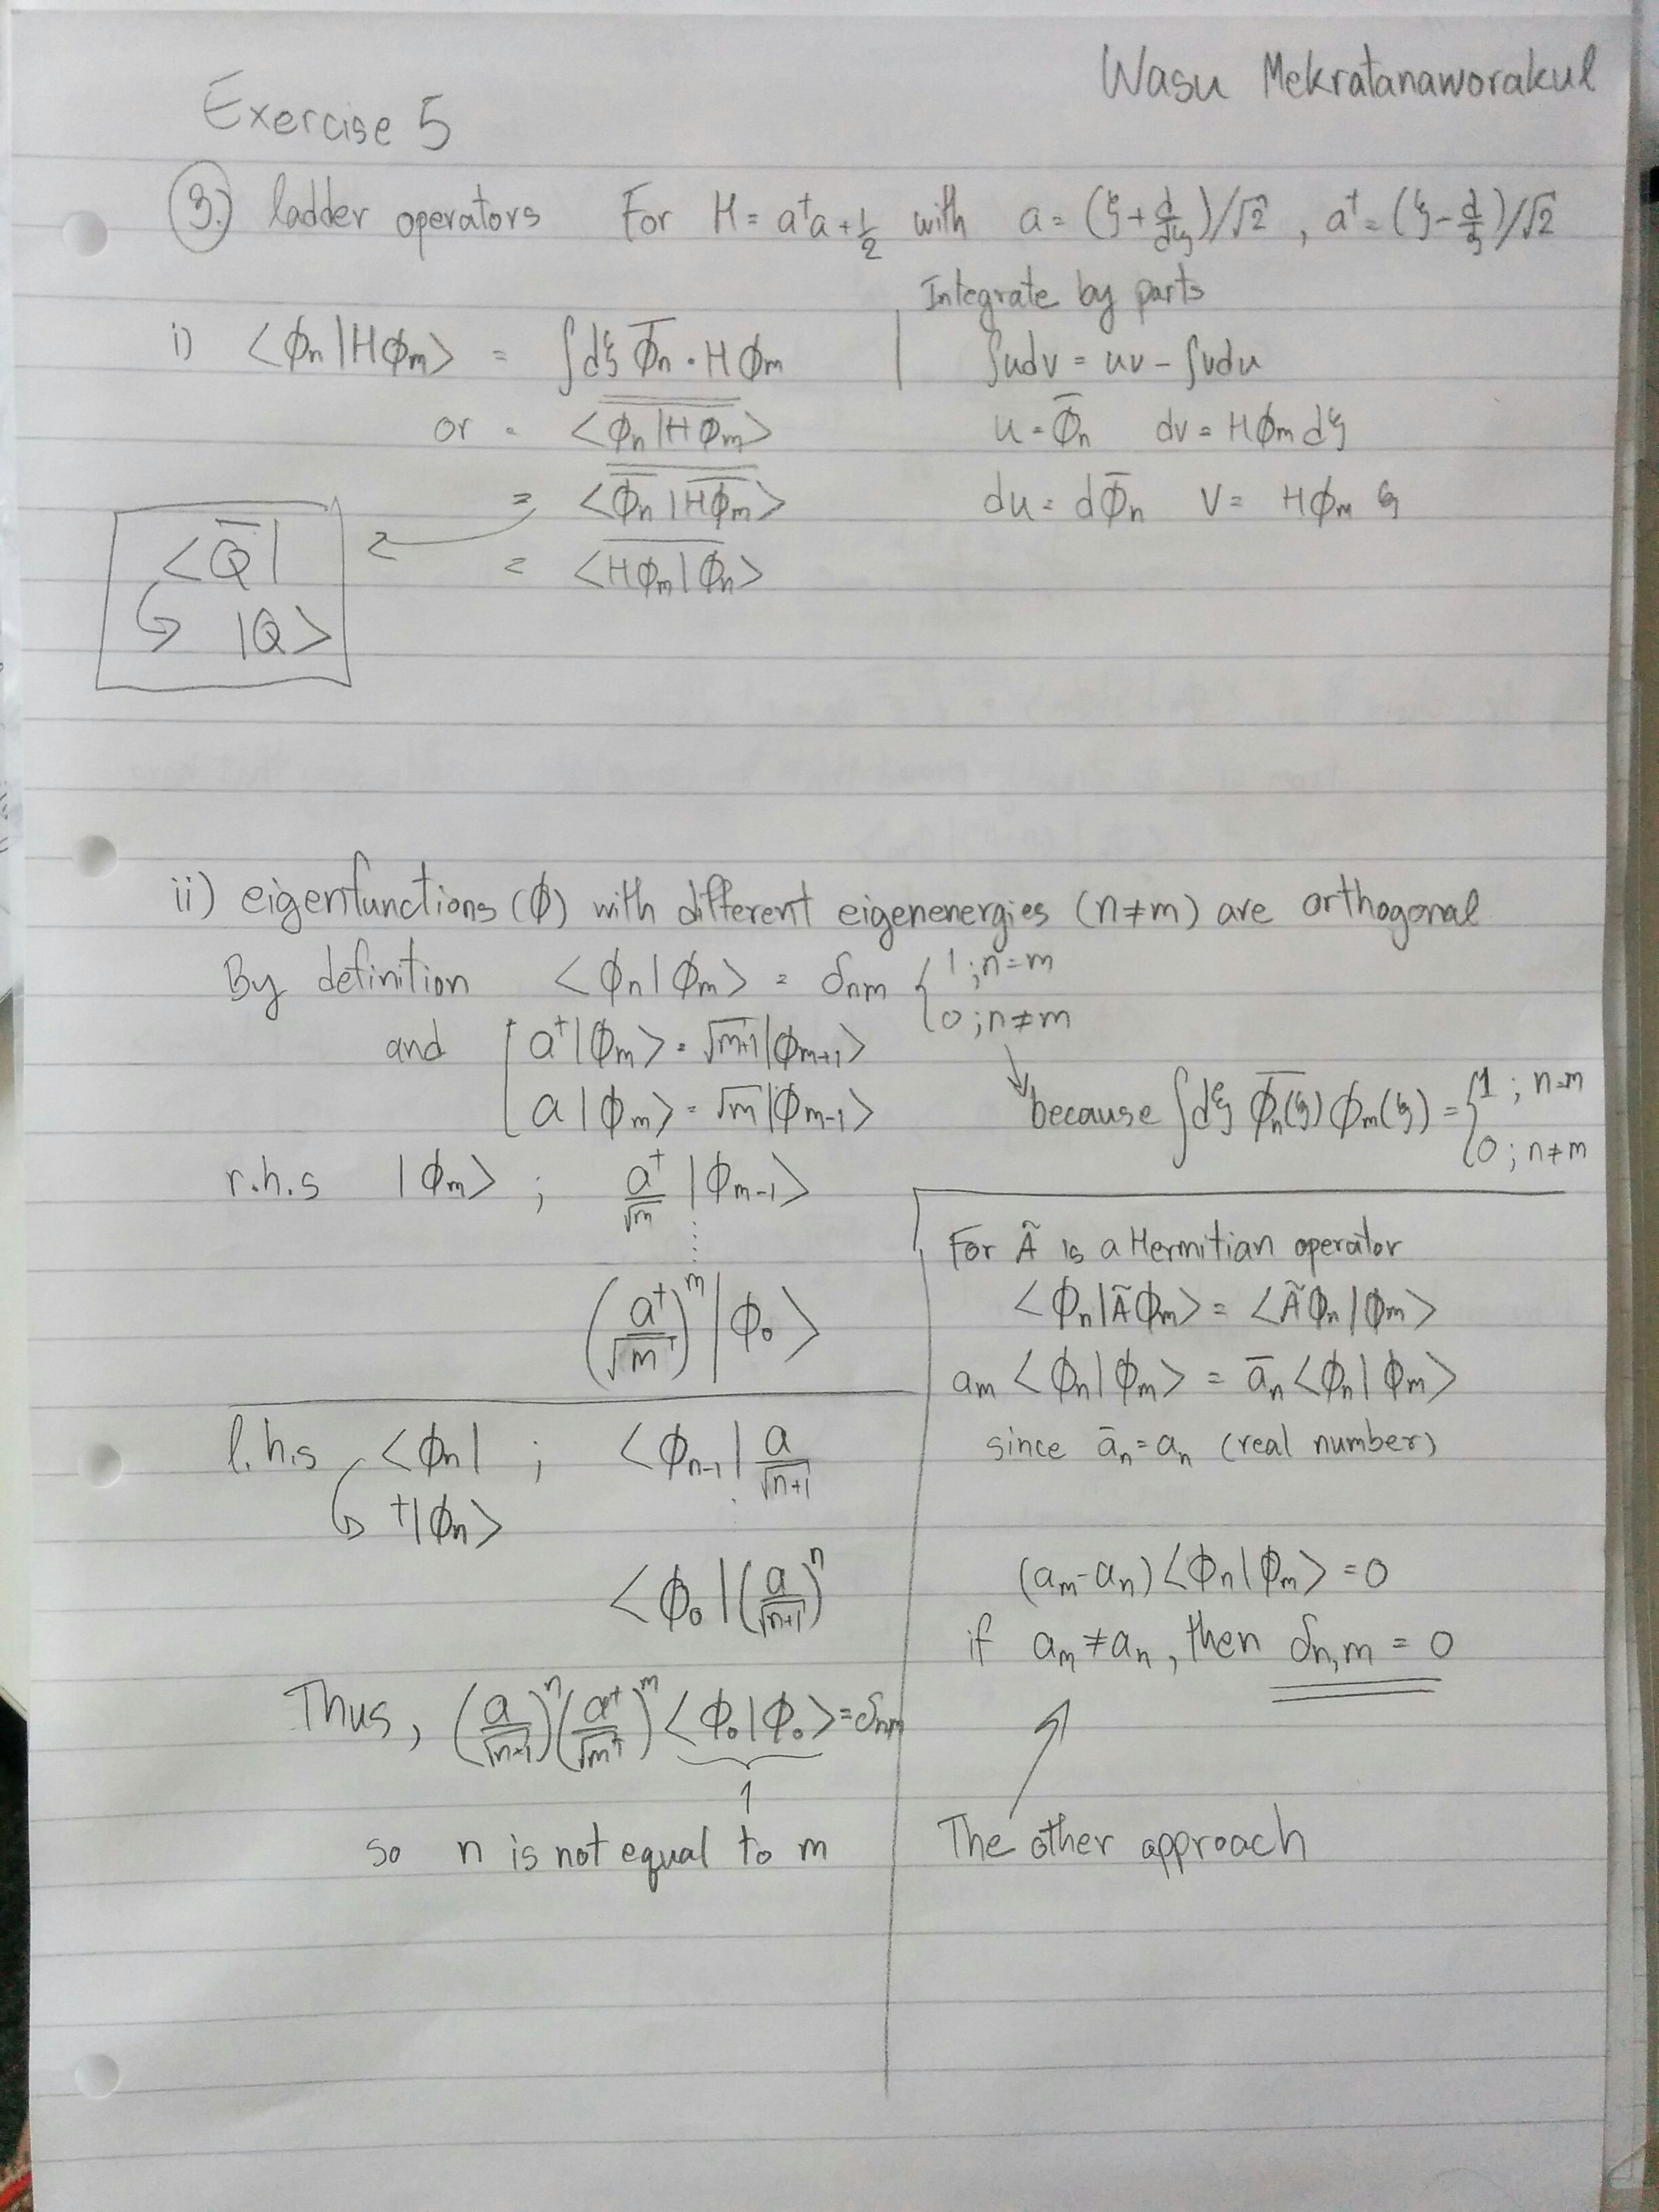 Wasu Mekratanaworakul
Exercise 5
3.) ladder operators For H = a†a + 1/2 with a = (ξ + d/dξ)/√2 , a† = (ξ - d/ξ)/√2
i) <ϕn|Hϕm> = ∫dξ ϕ̅n · Hϕm
or = <ϕn|Hϕm>
= <ϕ̅n|H̅ϕ̅m>
= <Hϕm|ϕn>
<Q̅|
|Q>
Integrate by parts
∫udv = uv - ∫vdu
u = ϕ̅n dv = Hϕm dξ
du = dϕ̅n v = Hϕm ξ
ii) eigenfunctions (ϕ) with different eigenenergies (n≠m) are orthogonal
By definition <ϕn|ϕm> = δnm { 1 ; n=m
0 ; n≠m
and [ a†|ϕm> = √m+1 |ϕm+1>
a|ϕm> = √m |ϕm-1>
because ∫dξ ϕ̅n(ξ) ϕm(ξ) = { 1 ; n=m
0 ; n≠m
r.h.s |ϕm> ; a†/√m |ϕm-1>
(a†/√m)^m |ϕ0>
l.h.s <ϕn| ; <ϕn-1| a/√n+1
†|ϕn>
<ϕ0|(a/√n+1)^n
Thus, (a/√n+1)^n (a†/√m)^m <ϕ0|ϕ0> = δnm
1
so n is not equal to m
For Ã is a Hermitian operator
<ϕn|Ãϕm> = <Ãϕn|ϕm>
am <ϕn|ϕm> = a̅n <ϕn|ϕm>
since a̅n = an (real number)
(am - an) <ϕn|ϕm> = 0
if am ≠ an , then δn,m = 0
The other approach